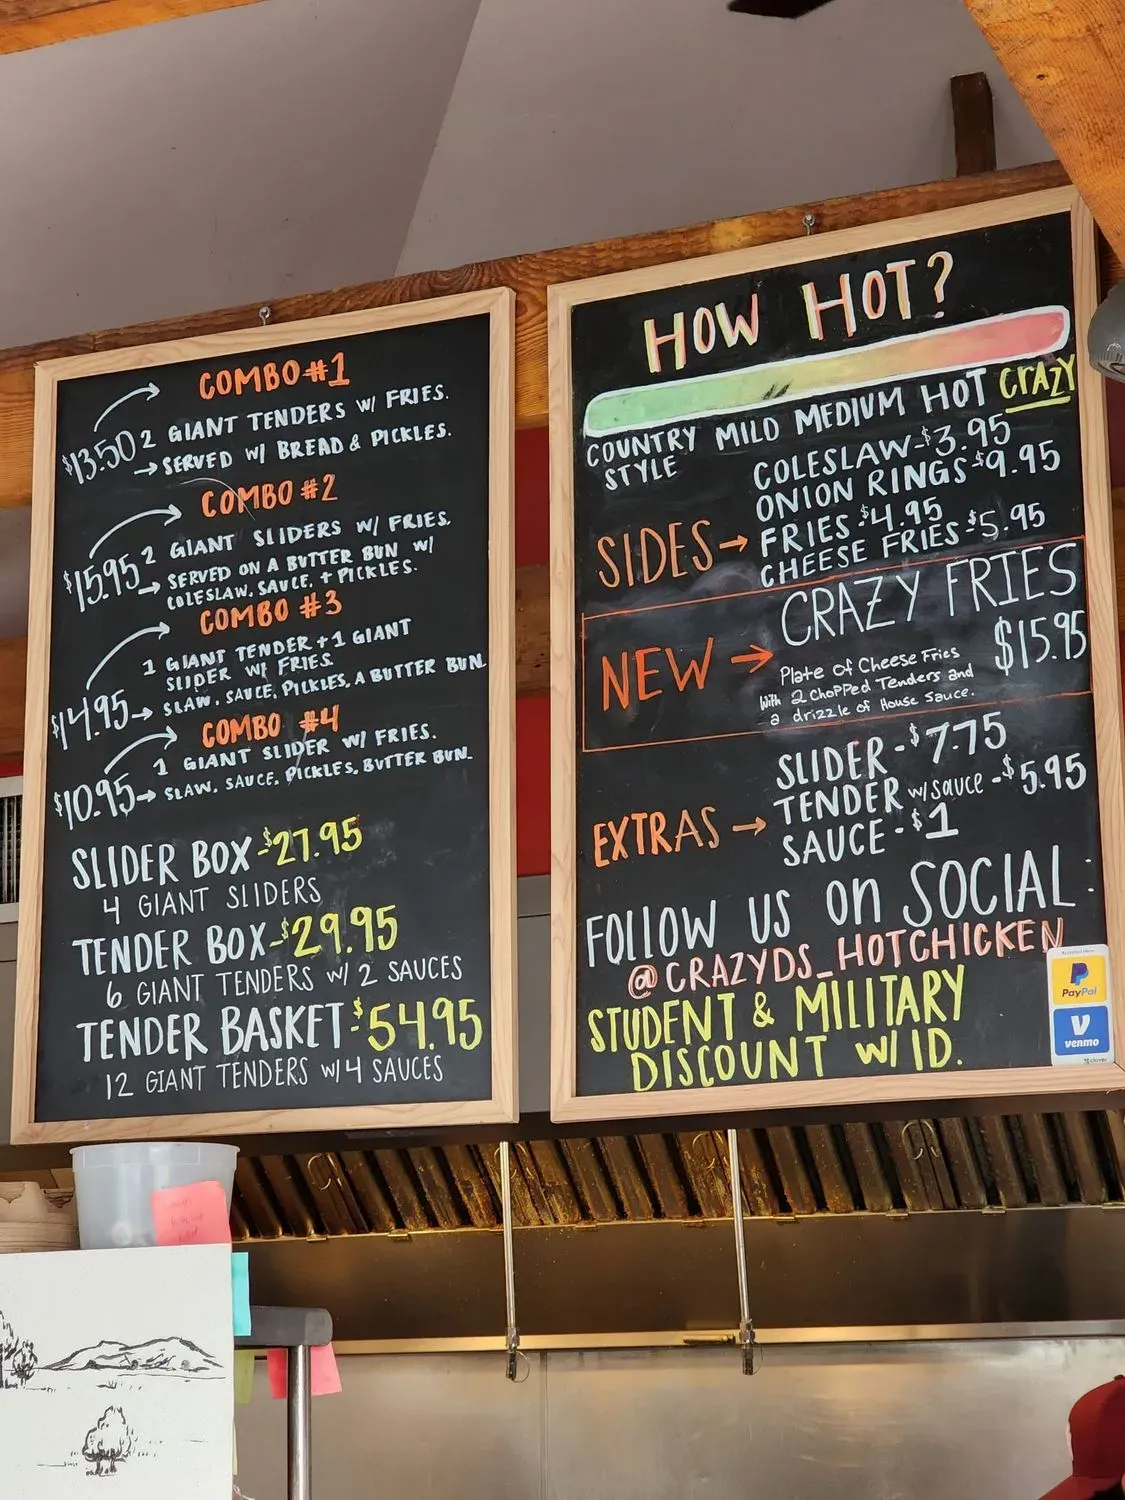 COMBO #1
$13.50 2 GIANT TENDERS W/ FRIES.
→ SERVED W/ BREAD & PICKLES.
COMBO #2
$15.95 2 GIANT SLIDERS W/ FRIES.
→ SERVED ON A BUTTER BUN W/
COLESLAW, SAUCE, + PICKLES.
COMBO #3
1 GIANT TENDER + 1 GIANT
SLIDER W/ FRIES.
$14.95 → SLAW, SAUCE, PICKLES, A BUTTER BUN.
COMBO #4
1 GIANT SLIDER W/ FRIES.
$10.95 → SLAW, SAUCE, PICKLES, BUTTER BUN.
SLIDER BOX - $27.95
4 GIANT SLIDERS
TENDER BOX - $29.95
6 GIANT TENDERS W/ 2 SAUCES
TENDER BASKET - $54.95
12 GIANT TENDERS W/ 4 SAUCES
HOW HOT?
COUNTRY STYLE MILD MEDIUM HOT CRAZY
SIDES →
COLESLAW - $3.95
ONION RINGS - $9.95
FRIES - $4.95
CHEESE FRIES - $5.95
NEW →
CRAZY FRIES
$15.95
Plate of Cheese Fries
With 2 Chopped Tenders and
a drizzle of House Sauce.
EXTRAS →
SLIDER - $7.75
TENDER w/ sauce - $5.95
SAUCE - $1
FOLLOW US on SOCIAL:
@CRAZYDS_HOTCHICKEN
STUDENT & MILITARY
DISCOUNT W/ ID.
PayPal
venmo
clover